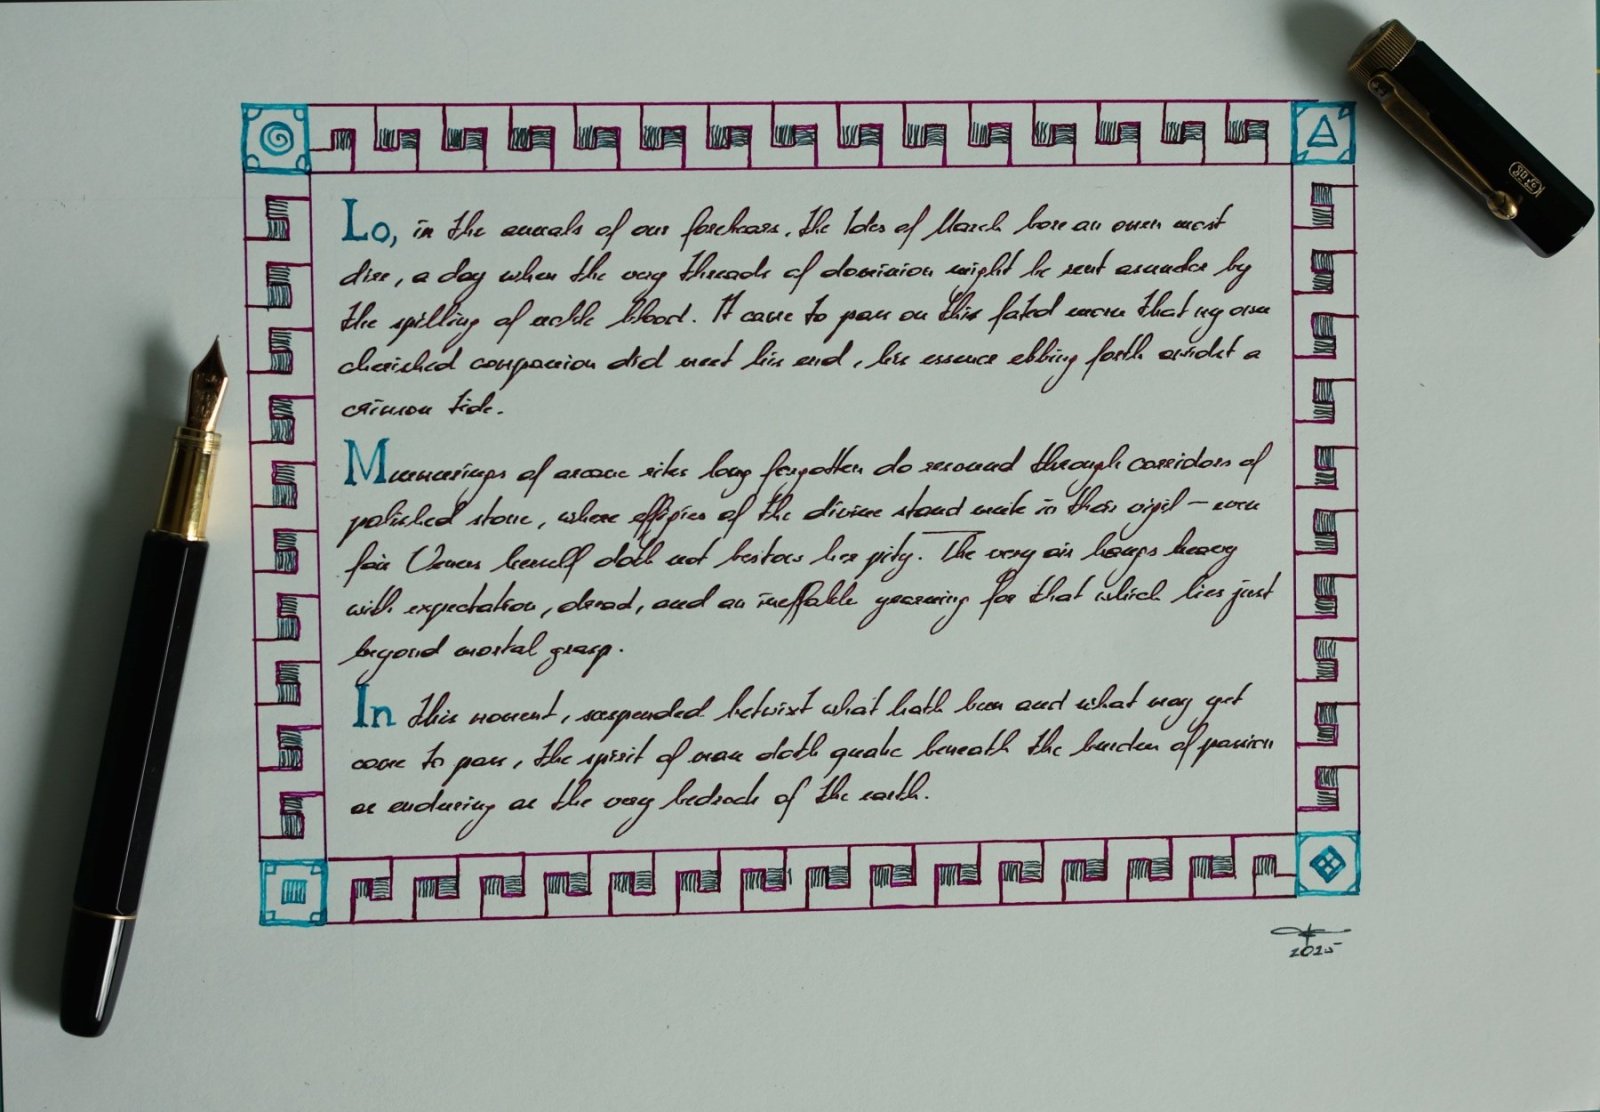 Lo, in the annals of our forebears, the Ides of March bore an omen most
dire, a day when the very threads of dominion might be rent asunder by
the spilling of noble blood. It came to pass on this fated morn that my own
cherished companion did meet his end, his essence ebbing forth amidst a
crimson tide.
Murmurings of arcane rites long forgotten do resound through corridors of
polished stone, where effigies of the divine stand mute in their vigil – even
fair Venus herself doth not bestow her pity. The very air hangs heavy
with expectation, dread, and an ineffable yearning for that which lies just
beyond mortal grasp.
In this moment, suspended betwixt what hath been and what may yet
come to pass, the spirit of man doth quake beneath the burden of passion
as enduring as the very bedrock of the earth.
2025